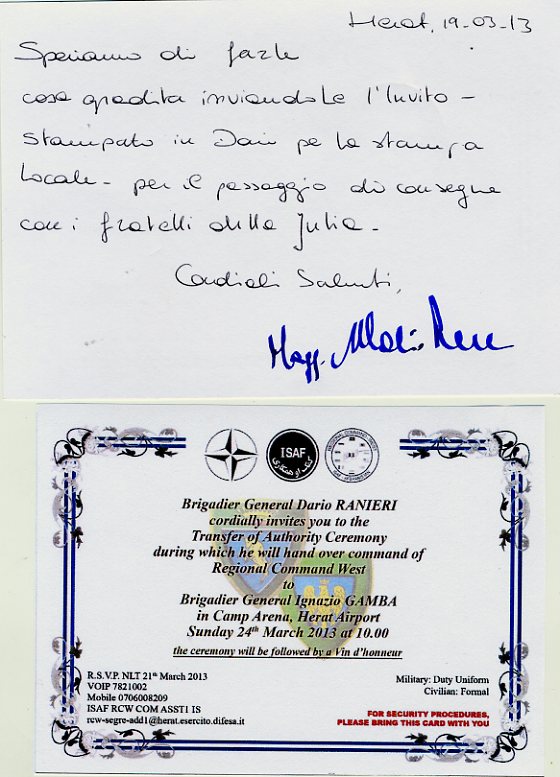 Herat, 19-03-13
Speriamo di farLe
cosa gradita inviandoLe l'Invito -
stampato in Dari pe la stampa
Locale - per il passaggio di consegne
con i fratelli della Julia -
Cordiali Saluti,
Magg.
ISAF
کمک او همکاری
REGIONAL COMMAND WEST
Brigadier General Dario RANIERI
cordially invites you to the
Transfer of Authority Ceremony
during which he will hand over command of
Regional Command West
to
Brigadier General Ignazio GAMBA
in Camp Arena, Herat Airport
Sunday 24th March 2013 at 10.00
the ceremony will be followed by a Vin d'honneur
R.S.V.P. NLT 21st March 2013
VOIP 7821002
Mobile 0706008209
ISAF RCW COM ASST1 IS
rcw-segre-add1@herat.esercito.difesa.it
Military: Duty Uniform
Civilian: Formal
FOR SECURITY PROCEDURES,
PLEASE BRING THIS CARD WITH YOU